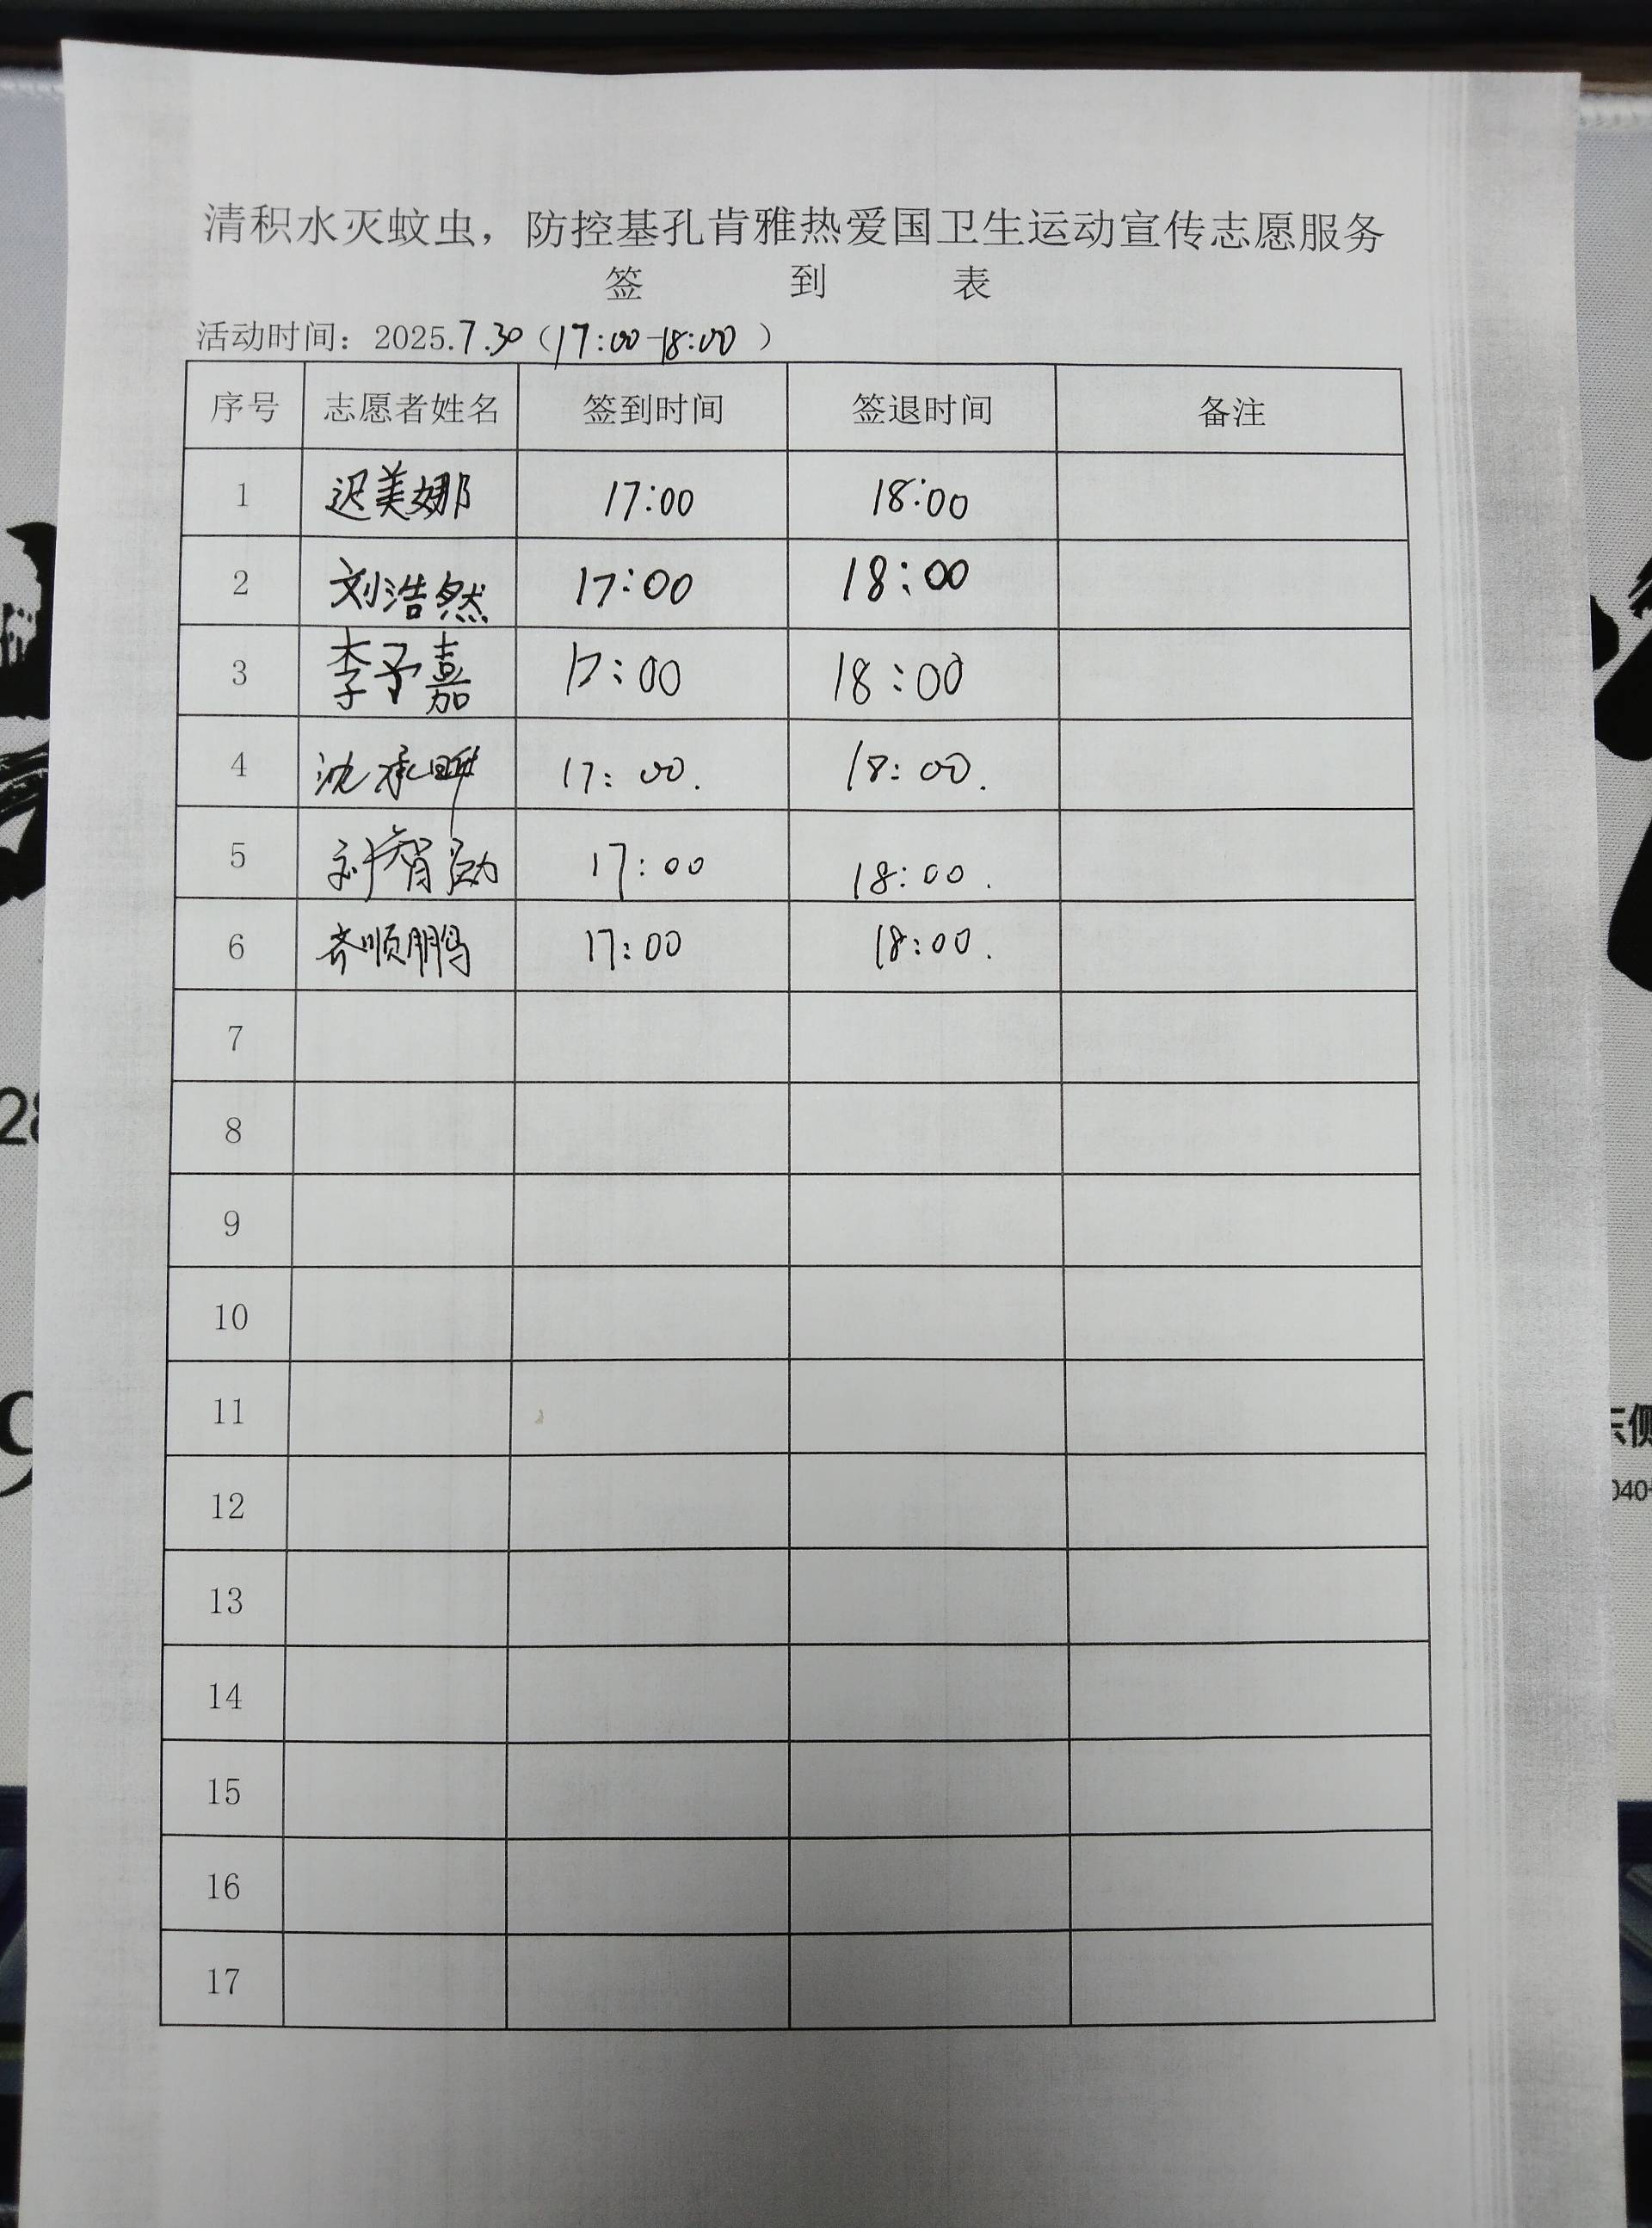 清积水灭蚊虫，防控基孔肯雅热爱国卫生运动宣传志愿服务
签 到 表
活动时间：2025.7.30（17:00-18:00）
序号 志愿者姓名 签到时间 签退时间 备注
1 迟美娜 17:00 18:00
2 刘浩然 17:00 18:00
3 李予嘉 17:00 18:00
4 沈承 17:00. 18:00.
5 刘智勋 17:00 18:00.
6 齐顺鹏 17:00 18:00.
7
8
9
10
11
12
13
14
15
16
17
28
9
东侧
040